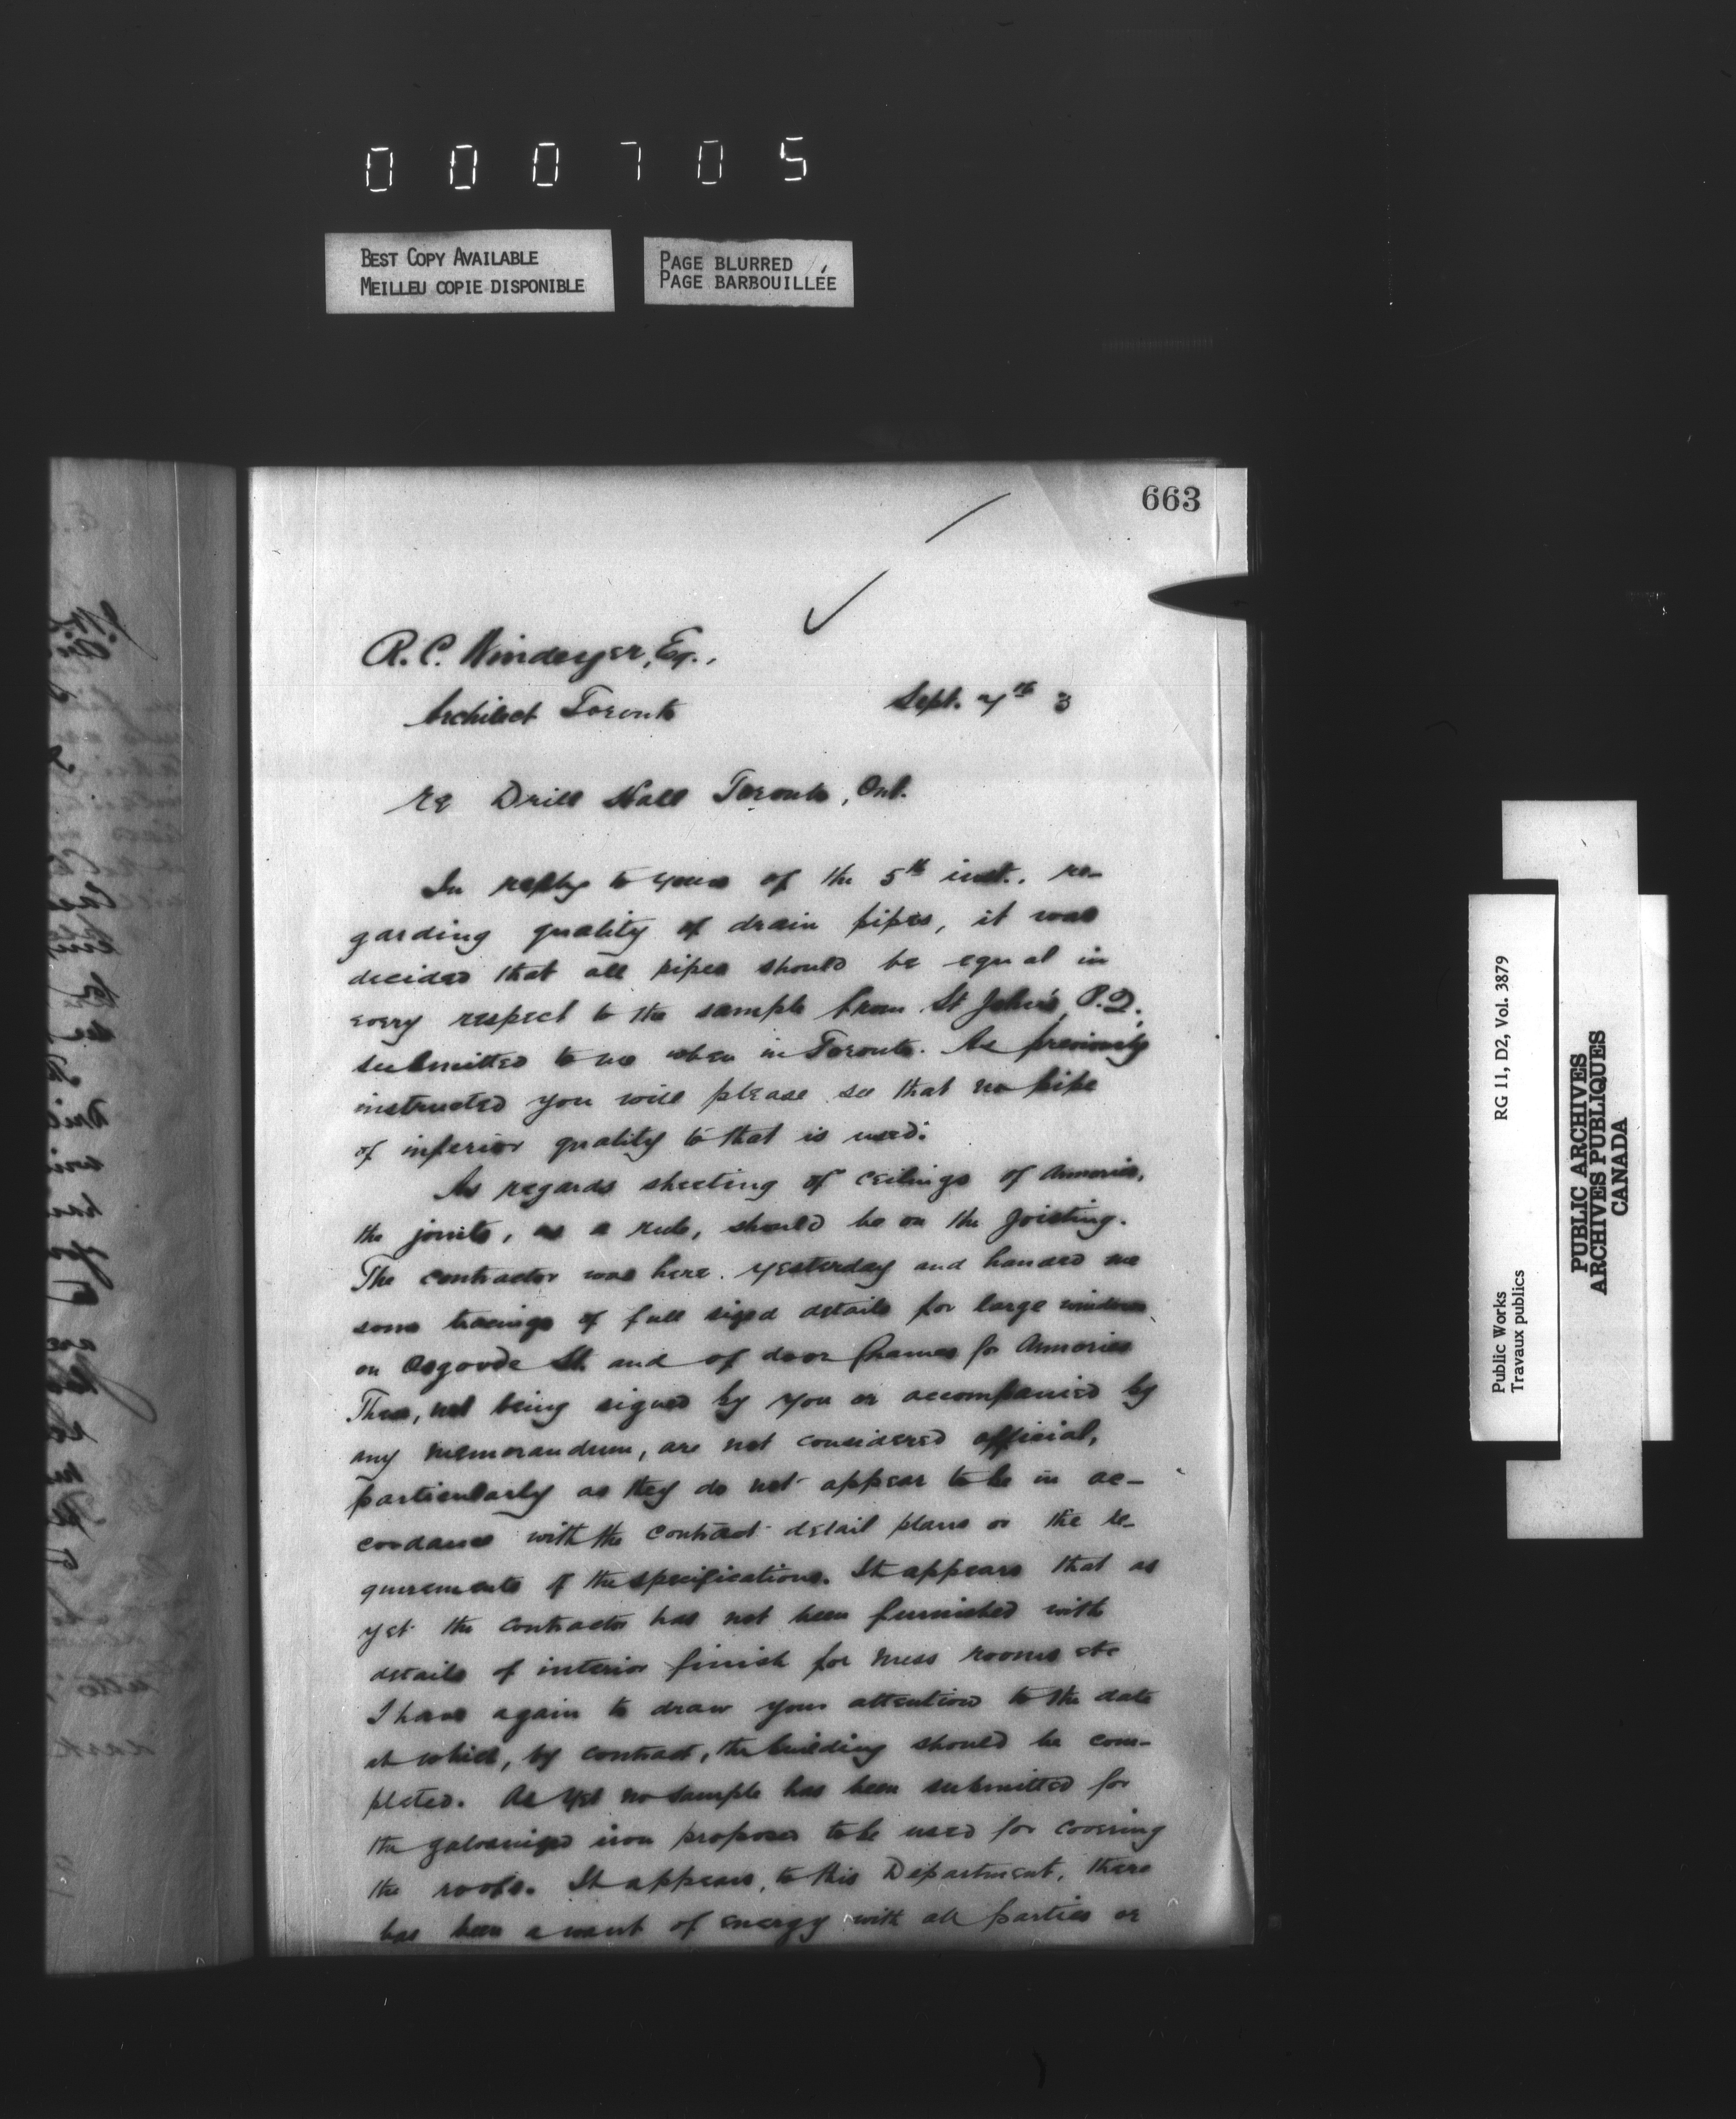 000705
BEST COPY AVAILABLE
MEILLEU COPIE DISPONIBLE
PAGE BLURRED
PAGE BARBOUILLÉE
663
R. C. Windeyer, Eq.,
Architect Toronto
Sept. 7th 3
re Drill Hall Toronto, Ont.
In reply to yours of the 5th inst., re-
garding quality of drain pipes, it was
decided that all pipes should be equal in
every respect to the sample from St John's, P.Q.,
submitted to me when in Toronto. As previously
instructed you will please see that no pipe
of inferior quality to that is used.
As regards sheeting of ceilings of Armories,
the joints, as a rule, should be on the joisting.
The contractor was here yesterday and handed me
some tracings of full sized details for large windows
on Osgoode St. and of door frames for Armories
These, not being signed by you or accompanied by
any memorandum, are not considered official,
particularly as they do not appear to be in ac-
cordance with the contract detail plans or the re-
quirements of the specifications. It appears that as
yet the contractor has not been furnished with
details of interior finish for mess rooms etc
I have again to draw your attention to the date
at which, by contract, the building should be com-
pleted. As yet no sample has been submitted for
the galvanized iron proposed to be used for covering
the roofs. It appears, to this Department, there
has been a want of energy with all parties or
Public Works
Travaux publics
RG 11, D2, Vol. 3879
PUBLIC ARCHIVES
ARCHIVES PUBLIQUES
CANADA